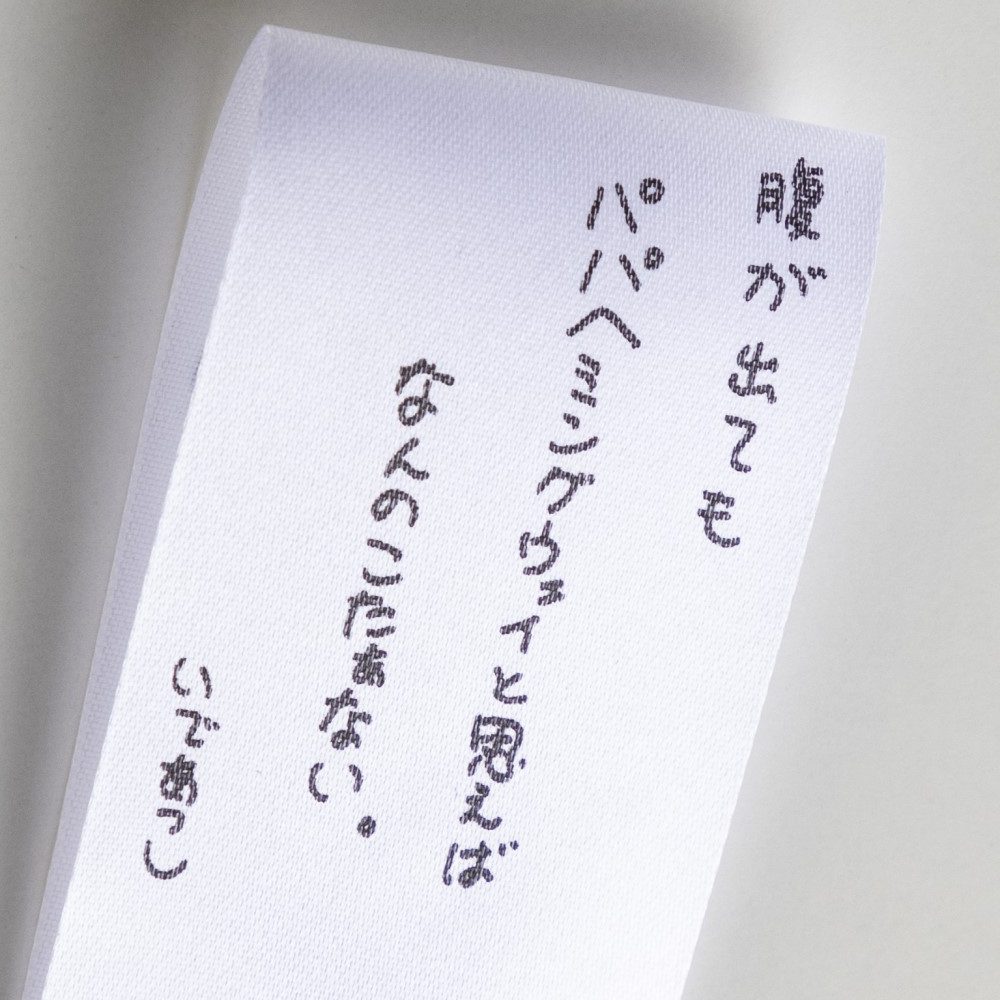 腹が出ても
パパヘミングウェイと思えば
なんのこたぁない。
いであつし